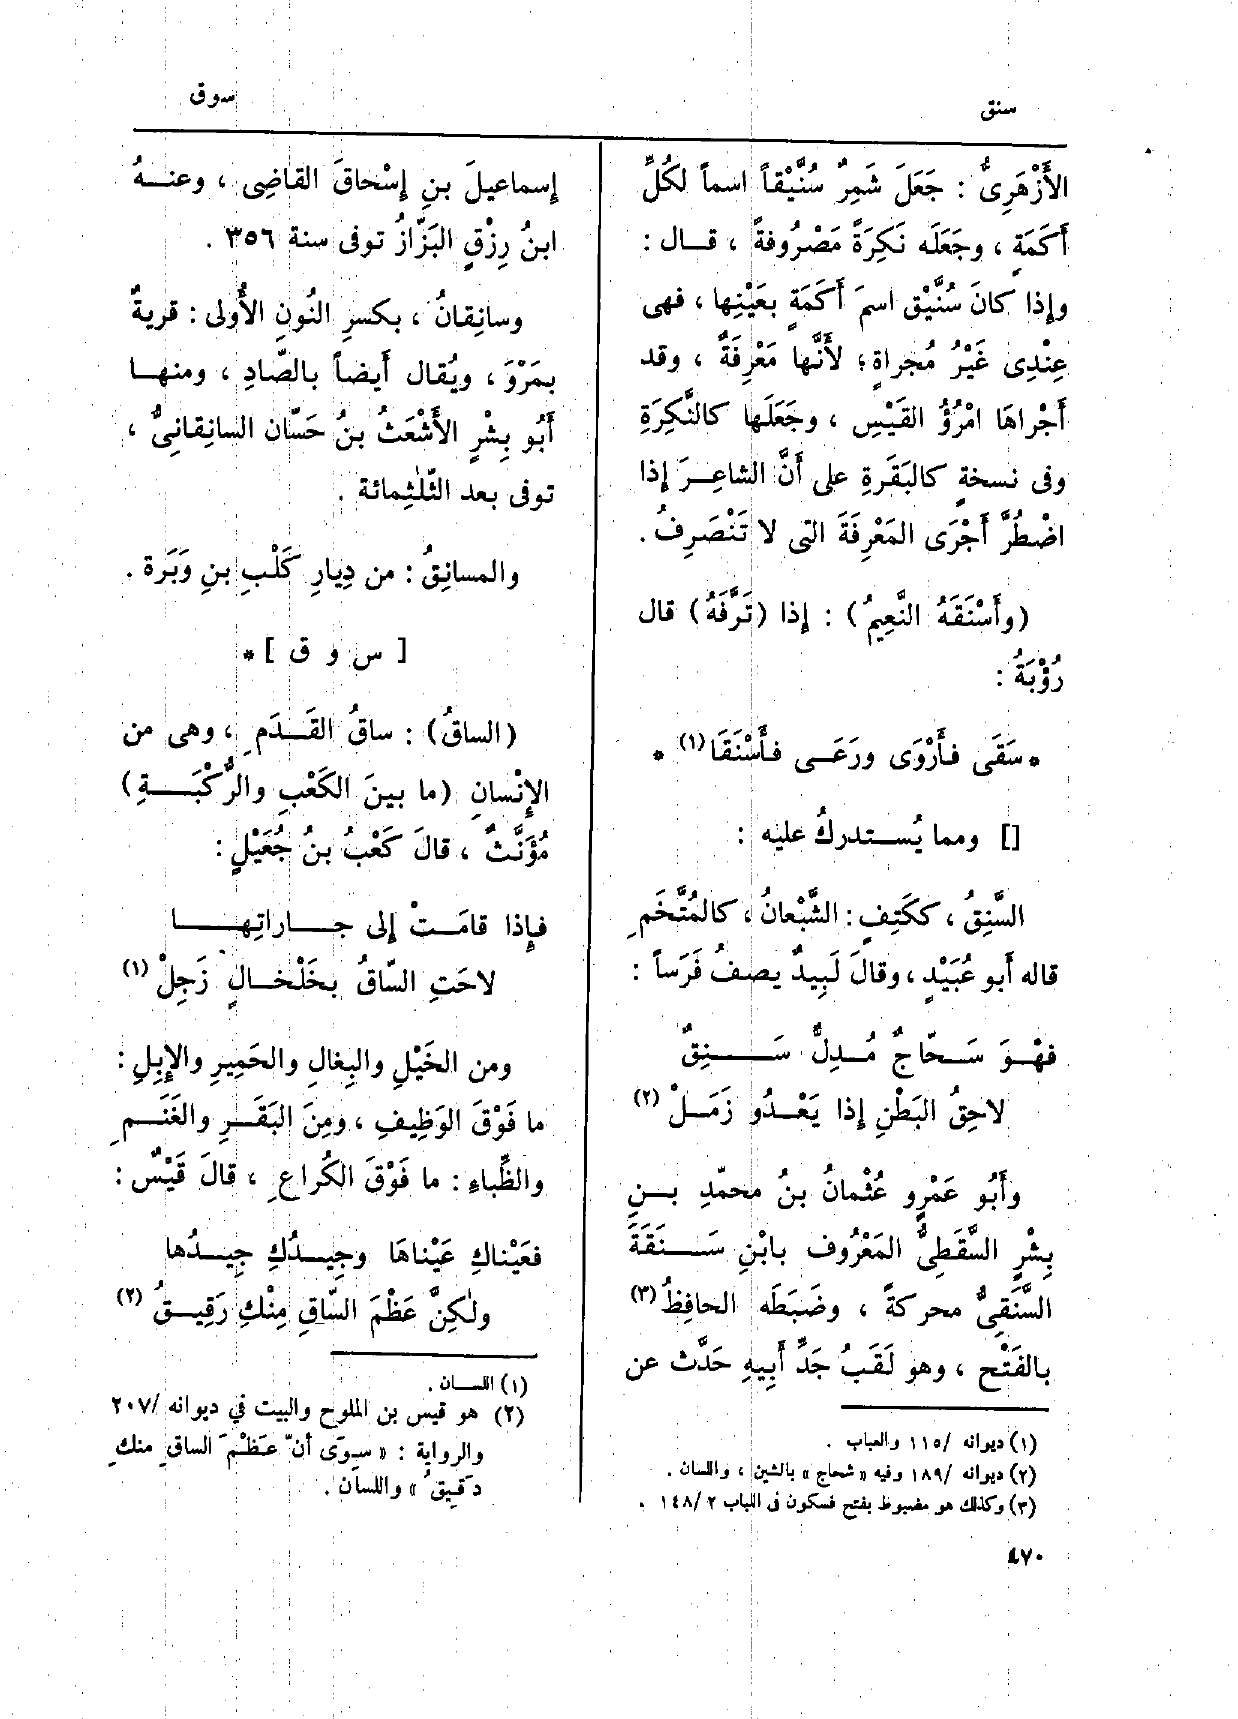 سنق
سوق
الأَزْهَرِىُّ : جَعَلَ شَمِرٌ سُنَّيْقاً اسماً لكُلِّ
أَكَمَةٍ ، وجَعَلَه نَكِرَةً مَصْرُوفةً ، قــال :
وإذا كانَ سُنَّيْق اسمَ أَكَمَةٍ بعَيْنِها ، فهى
عِنْدِى غَيْرُ مُجراةٍ ؛ لأَنَّها مَعْرِفَةٌ ، وقد
أَجْراهَا امْرُؤُ القَيْسِ ، وجَعَلَها كالنَّكِرَةِ
وفى نسخةٍ كالبَقَرةِ على أَنَّ الشاعِـرَ إذا
اضْطُرَّ أَجْرَى المَعْرِفَةَ التى لا تَنْصَرِفُ .
(وأَسْنَقَهُ النَّعِيمُ) : إذا (تَرَّفَهُ) قال
رُؤْبَةُ :
* سَقَى فـأَرْوَى ورَعَـى فـأَسْنَقَا (١) *
[] ومما يُســتدركُ عليه :
السَّنِقُ ، ككَتِفٍ : الشَّبْعانُ ، كالمُتَّخَمِ
قاله أَبو عُبَيْدٍ ، وقالَ لَبِيدٌ يصفُ فَرَساً :
فهْـوَ سَـحّاجٌ مُـدِلٌّ سَـــنِقٌ
لاحِقُ البَطْنِ إذا يَعْـدُو زَمَـلْ (٢)
وأَبُو عَمْرٍو عُثْمانُ بنُ محمّدِ بـنِ
بِشْرٍ السَّقَطِىُّ المَعْرُوف بابْنِ سَــنَقَةَ
السَّنَقِىُّ محركةً ، وضَبَطَه الحافِظُ (٣)
بالفَتْح ، وهو لَقَبُ جَدِّ أَبِيهِ حَدَّث عن
(١) ديوانه /١١٥ والعباب .
(٢) ديوانه /١٨٩ وفيه « شحاج » بالشين ، واللسان .
(٣) وكذلك هو مضبوط بفتح فسكون فى اللباب ٢ /١٤٨ .
إسماعيلَ بنِ إسْحاقَ القاضِى ، وعنــهُ
ابنُ رِزْقٍ البَزَّازُ توفى سنة ٣٥٦ .
وسانِقانُ ، بكسرِ النُونِ الأُولى : قريةٌ
بمَرْوَ ، ويُقال أَيضاً بالصّادِ ، ومنهــا
أَبُو بِشْرٍ الأَشْعَثُ بنُ حَسّان السانِقانىُّ ،
توفى بعد الثّلْثِمائة .
والمسانِقُ : من دِيارِ كَلْبِ بنِ وَبَرَة .
[ س و ق ] *
(الساقُ) : ساقُ القَــدَمِ ، وهى من
الإنْسانِ (ما بينَ الكَعْبِ والرُّكْبَـــةِ)
مُؤَنَّثٌ ، قالَ كَعْبُ بنُ جُعَيْلٍ :
فـإذا قامَـتْ إلى جــاراتِهــا
لاحَتِ السّاقُ بخَلْخـالٍ زَجِلْ (١)
ومن الخَيْلِ والبِغالِ والحَمِيرِ والإبِلِ :
ما فَوْقَ الوَظِيفِ ، ومِنَ البَقَـرِ والغَنَـمِ
والظِّباءِ : ما فَوْقَ الكُراعِ ، قالَ قَيْسٌ :
فعَيْناكِ عَيْناهَا وجِيـدُكِ جِيـدُها
ولكِنَّ عَظْمَ السّاقِ مِنْكِ رَقِيـقُ (٢)
(١) اللسـان .
(٢) هو قيس بن الملوح والبيت في ديوانه /٢٠٧
والرواية : « سِوَى أنّ عَظْمَ الساقِ منكِ
دَقيقُ » واللسان .
٤٧٠